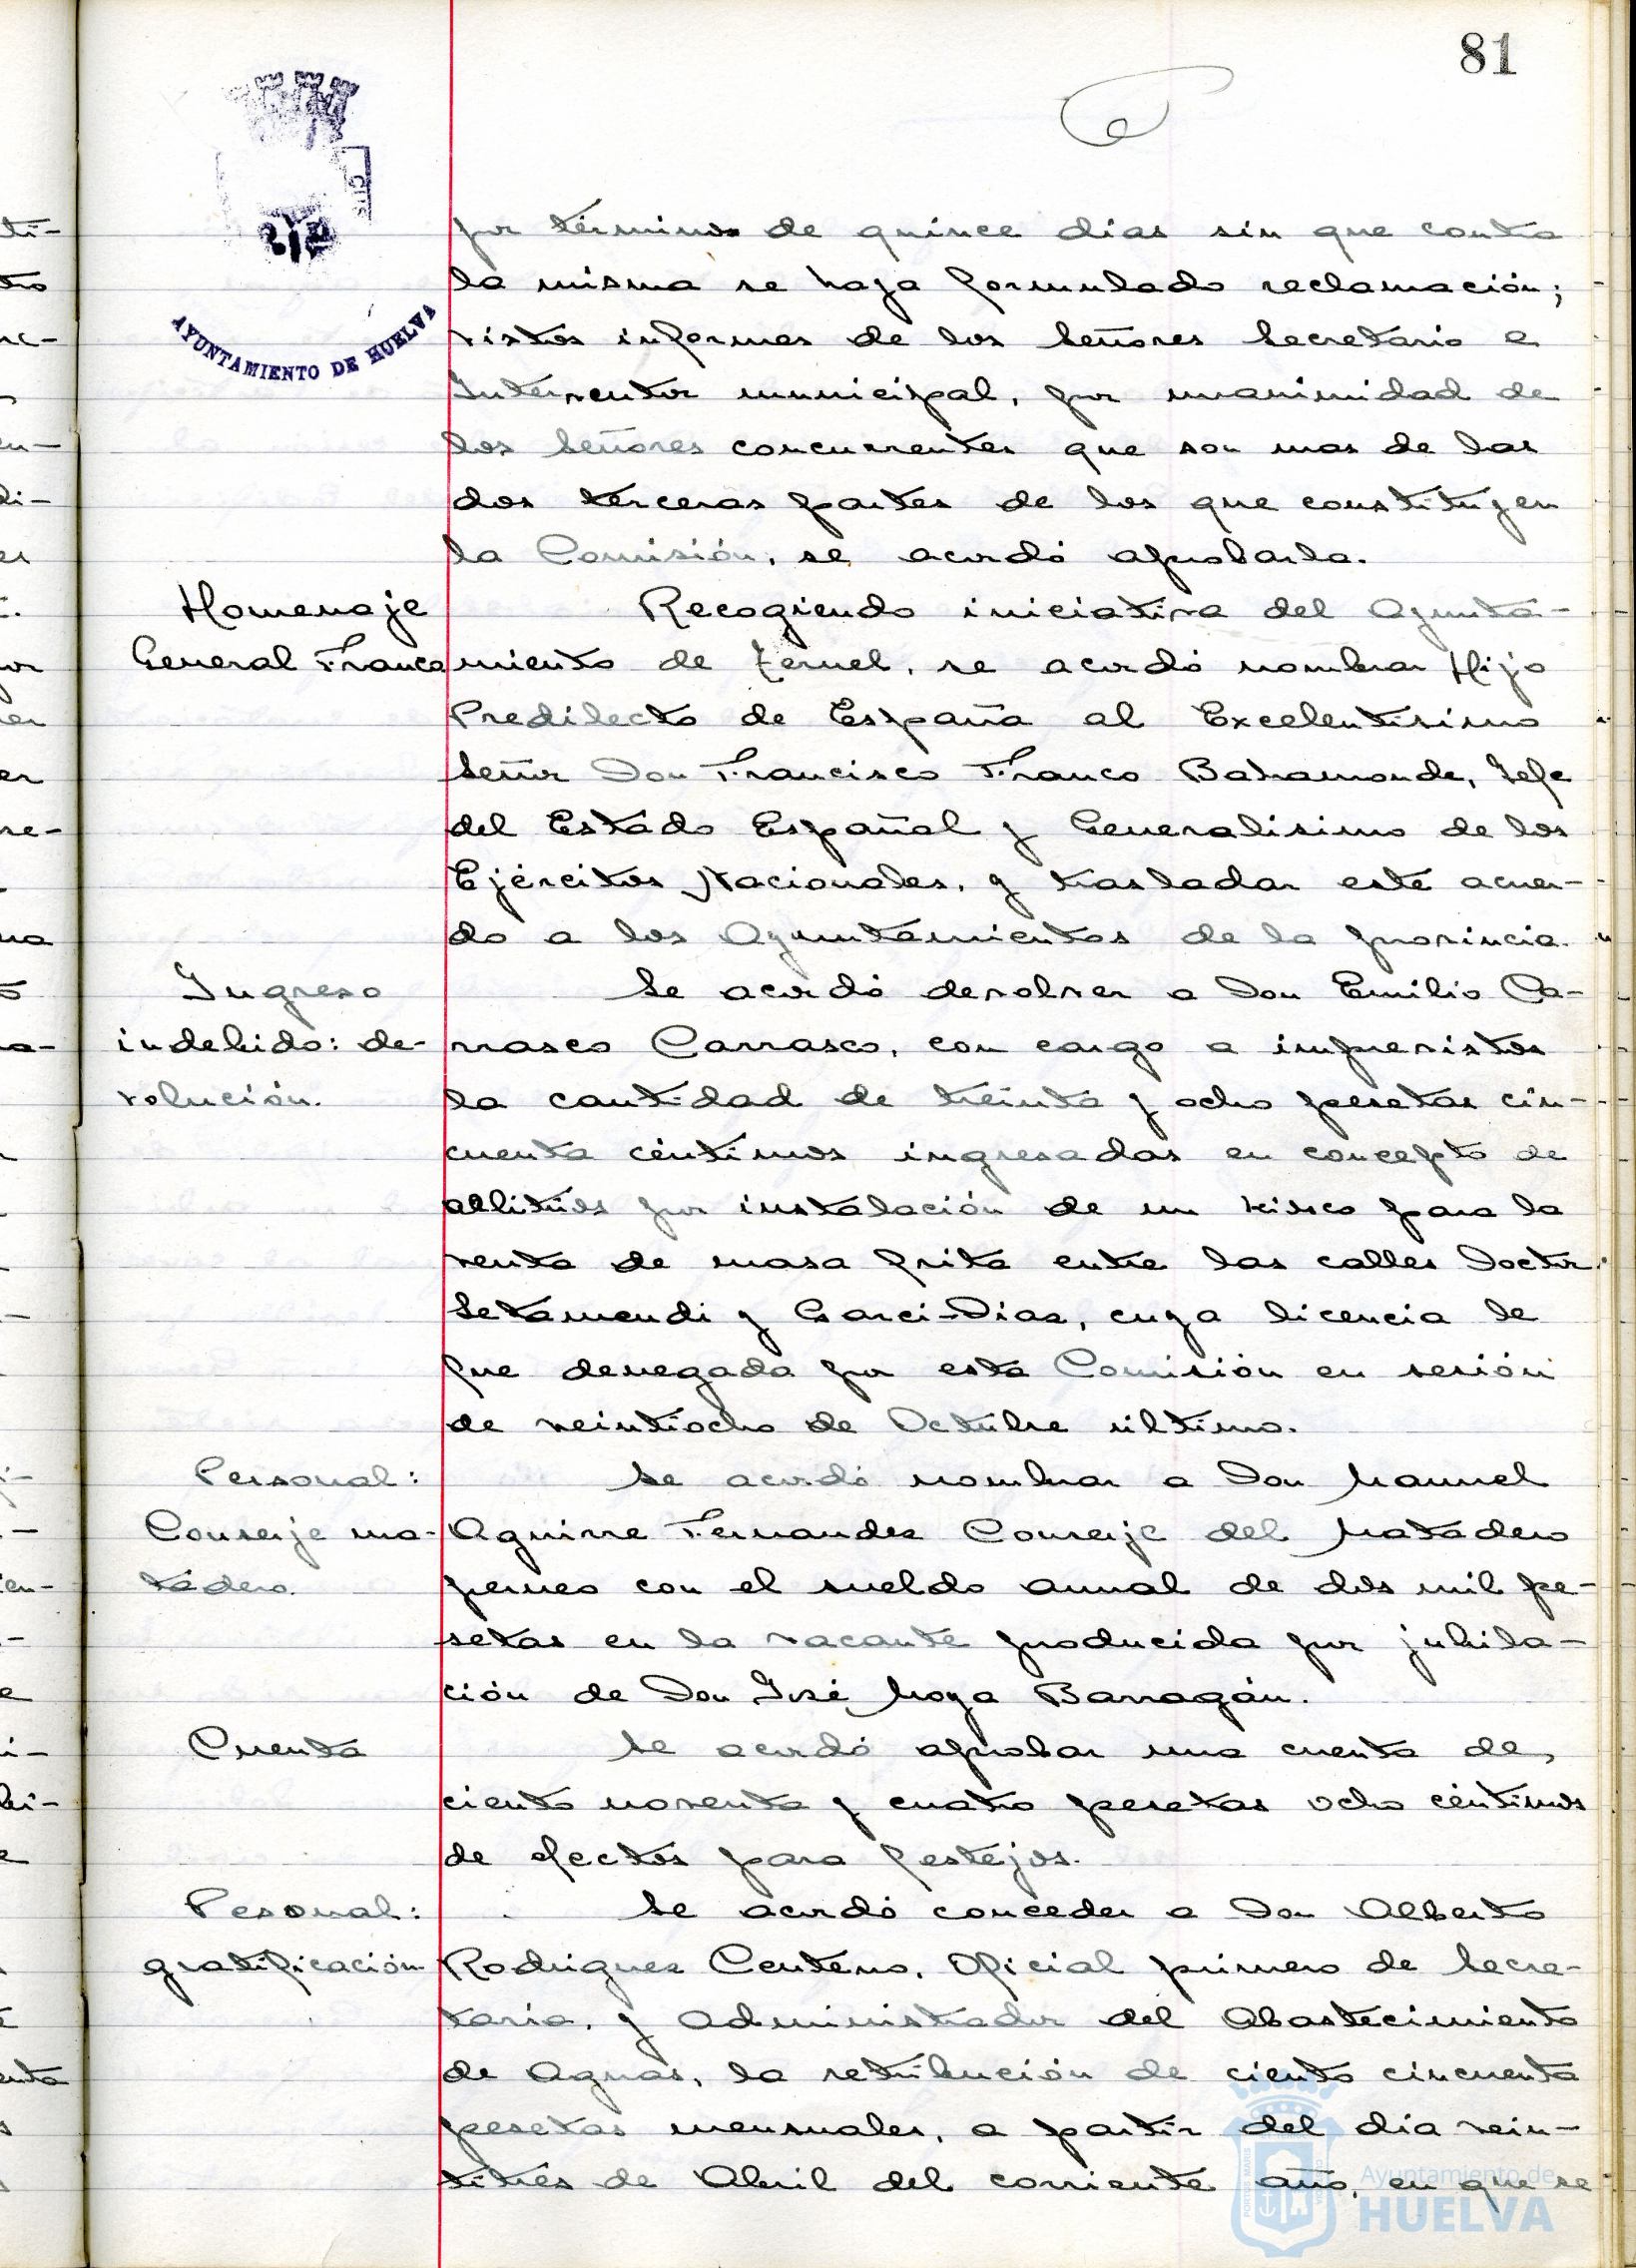 81
AYUNTAMIENTO DE HUELVA
por término de quince dias sin que contra
la misma se haya formulado reclamación;
vistos informes de los Señores Secretario e
Interventor municipal, por unanimidad de
los Señores concurrentes que son mas de las
dos terceras partes de los que constituyen
la Comisión, se acordó aprobarla.
Homenaje
General Franco
Recogiendo iniciativa del Ayunta-
miento de Teruel, se acordó nombrar Hijo
Predilecto de España al Excelentisimo
Señor Don Francisco Franco Bahamonde, Jefe
del Estado Español y Generalisimo de los
Ejércitos Nacionales, y trasladar este acuer-
do a los Ayuntamientos de la provincia.
Ingreso
indebido: de-
volución.
Se acordó devolver a Don Emilio Ca-
rrasco Carrasco, con cargo a imprevistos
la cantidad de treinta y ocho pesetas cin-
cuenta céntimos ingresadas en concepto de
arbitrios por instalación de un kiosco para la
venta de masa frita entre las calles Doctor
Letamendi y Garci-Diaz, cuya licencia le
fue denegada por esta Comisión en sesión
de veintiocho de Octubre último.
Personal:
Conserje ma-
tadero.
Se acordó nombrar a Don Manuel
Aguirre Fernandez Conserje del Matadero
perneo con el sueldo anual de dos mil pe-
setas en la vacante producida por jubila-
ción de Don José Moya Barragán.
Cuenta
Se acordó aprobar una cuenta de,
ciento noventa y cuatro pesetas ocho céntimos
de efectos para festejos.
Pesonal:
gratificación
Se acordó conceder a Don Alberto
Rodriguez Centeno, Oficial primero de Secre-
taria, y Administrador del Abastecimiento
de Aguas, la retribución de ciento cincuenta
pesetas mensuales, a partir del dia vein-
titrés de Abril del corriente año, en que se
Ayuntamiento de
HUELVA